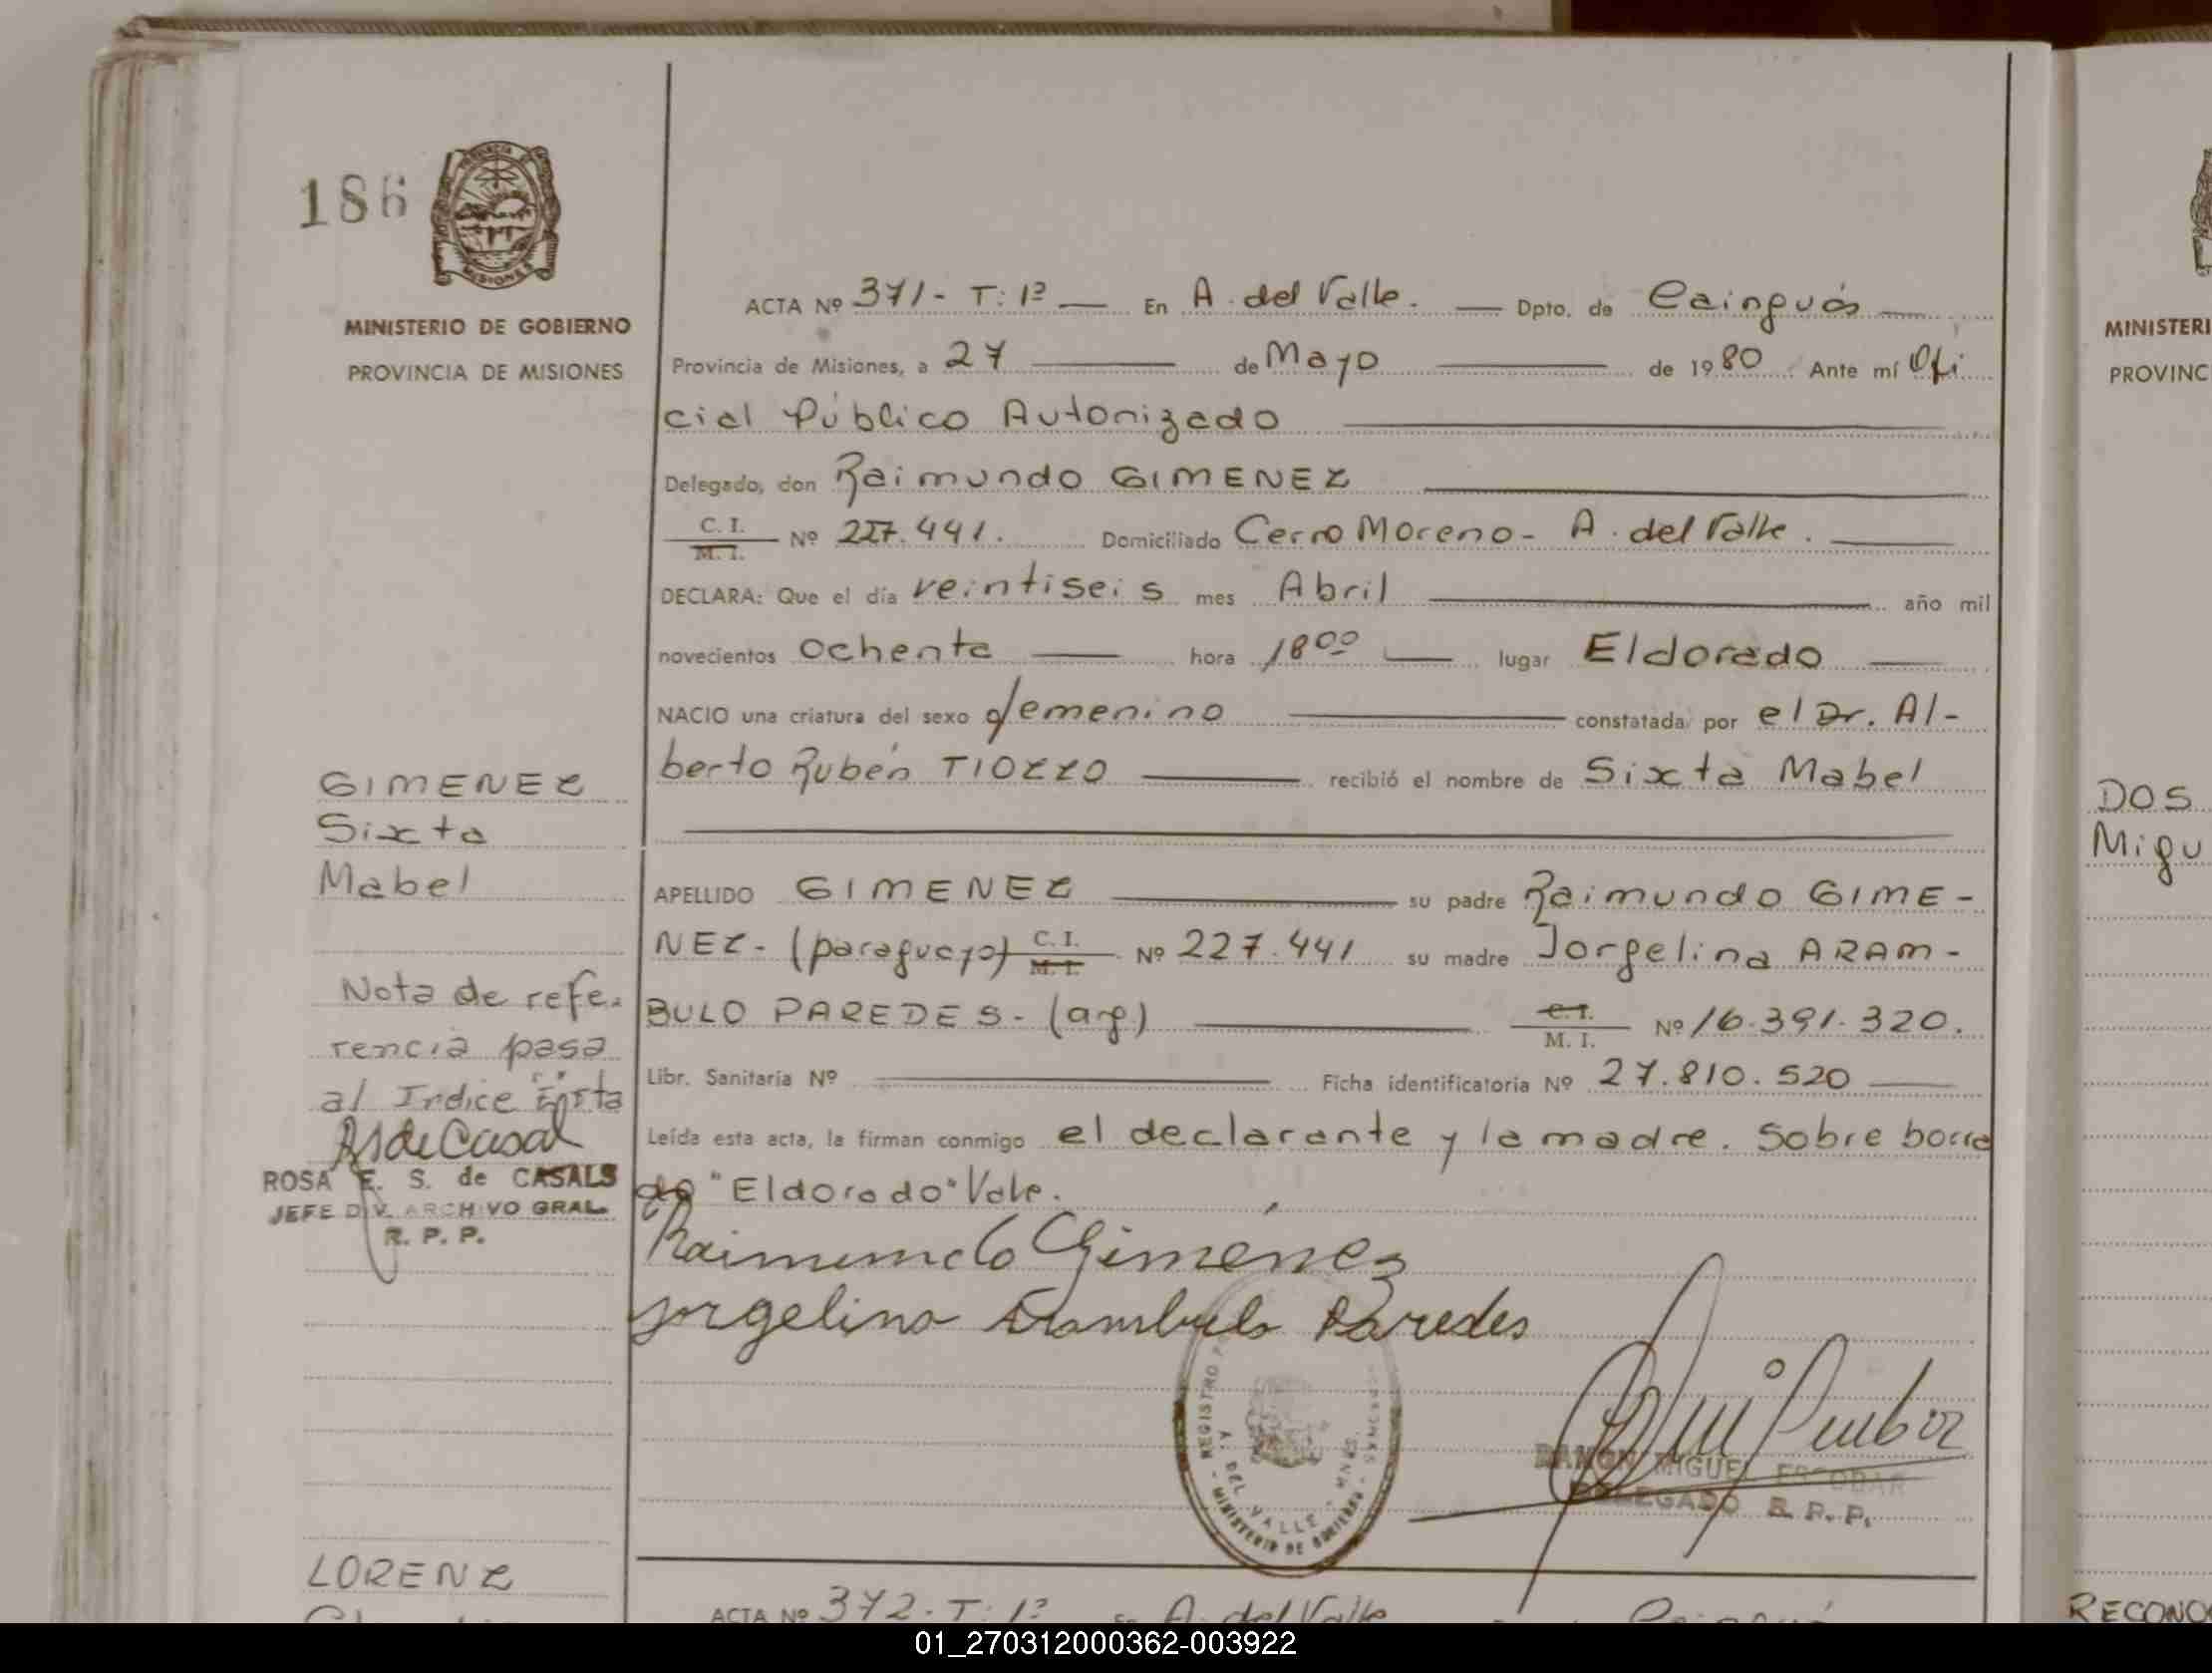 186
PROVINCIA DE
MISIONES
MINISTERIO DE GOBIERNO
PROVINCIA DE MISIONES
ACTA Nº 371- T: 1º — En A. del Valle. — Dpto. de Cainguás —
Provincia de Misiones, a 27 — de Mayo — de 1980 Ante mí Ofi
cial Público Autorizado —
Delegado, don Raimundo GIMENEZ —
C. I. / M. I. Nº 227.441. Domiciliado Cerro Moreno - A. del Valle. —
DECLARA: Que el día veintiseis mes Abril — año mil
novecientos ochenta — hora 18 00 — lugar Eldorado —
NACIO una criatura del sexo femenino — constatada por el Dr. Al-
berto Rubén TIOZZO — recibió el nombre de Sixta Mabel
GIMENEZ
Sixta
Mabel
APELLIDO GIMENEZ — su padre Raimundo GIME-
NEZ - (paraguayo) C. I. / M. I. Nº 227.441 su madre Jorgelina ARAM-
BULO PAREDES - (arg) — C. I. / M. I. Nº 16.391.320.
Libr. Sanitaria Nº — Ficha identificatoria Nº 27.810.520 —
Leída esta acta, la firman conmigo el declarante y la madre. Sobre borra
do "Eldorado" Vale.
Nota de refe-
rencia pasa
al Indice
ROSA E. S. de CASALS
JEFE DIV. ARCHIVO GRAL.
R. P. P.
Raimundo Giménez
Jorgelina Arambulo Paredes
REGISTRO
A. DEL VALLE
MINISTERIO DE GOBIERNO
RAMON MIGUEL ESCOBAR
DELEGADO R. P. P.
LORENZ
ACTA Nº 372 - T: 1º En A. del Valle
MINISTERI
PROVINC
DOS
Migu
RECONO
01_270312000362-003922